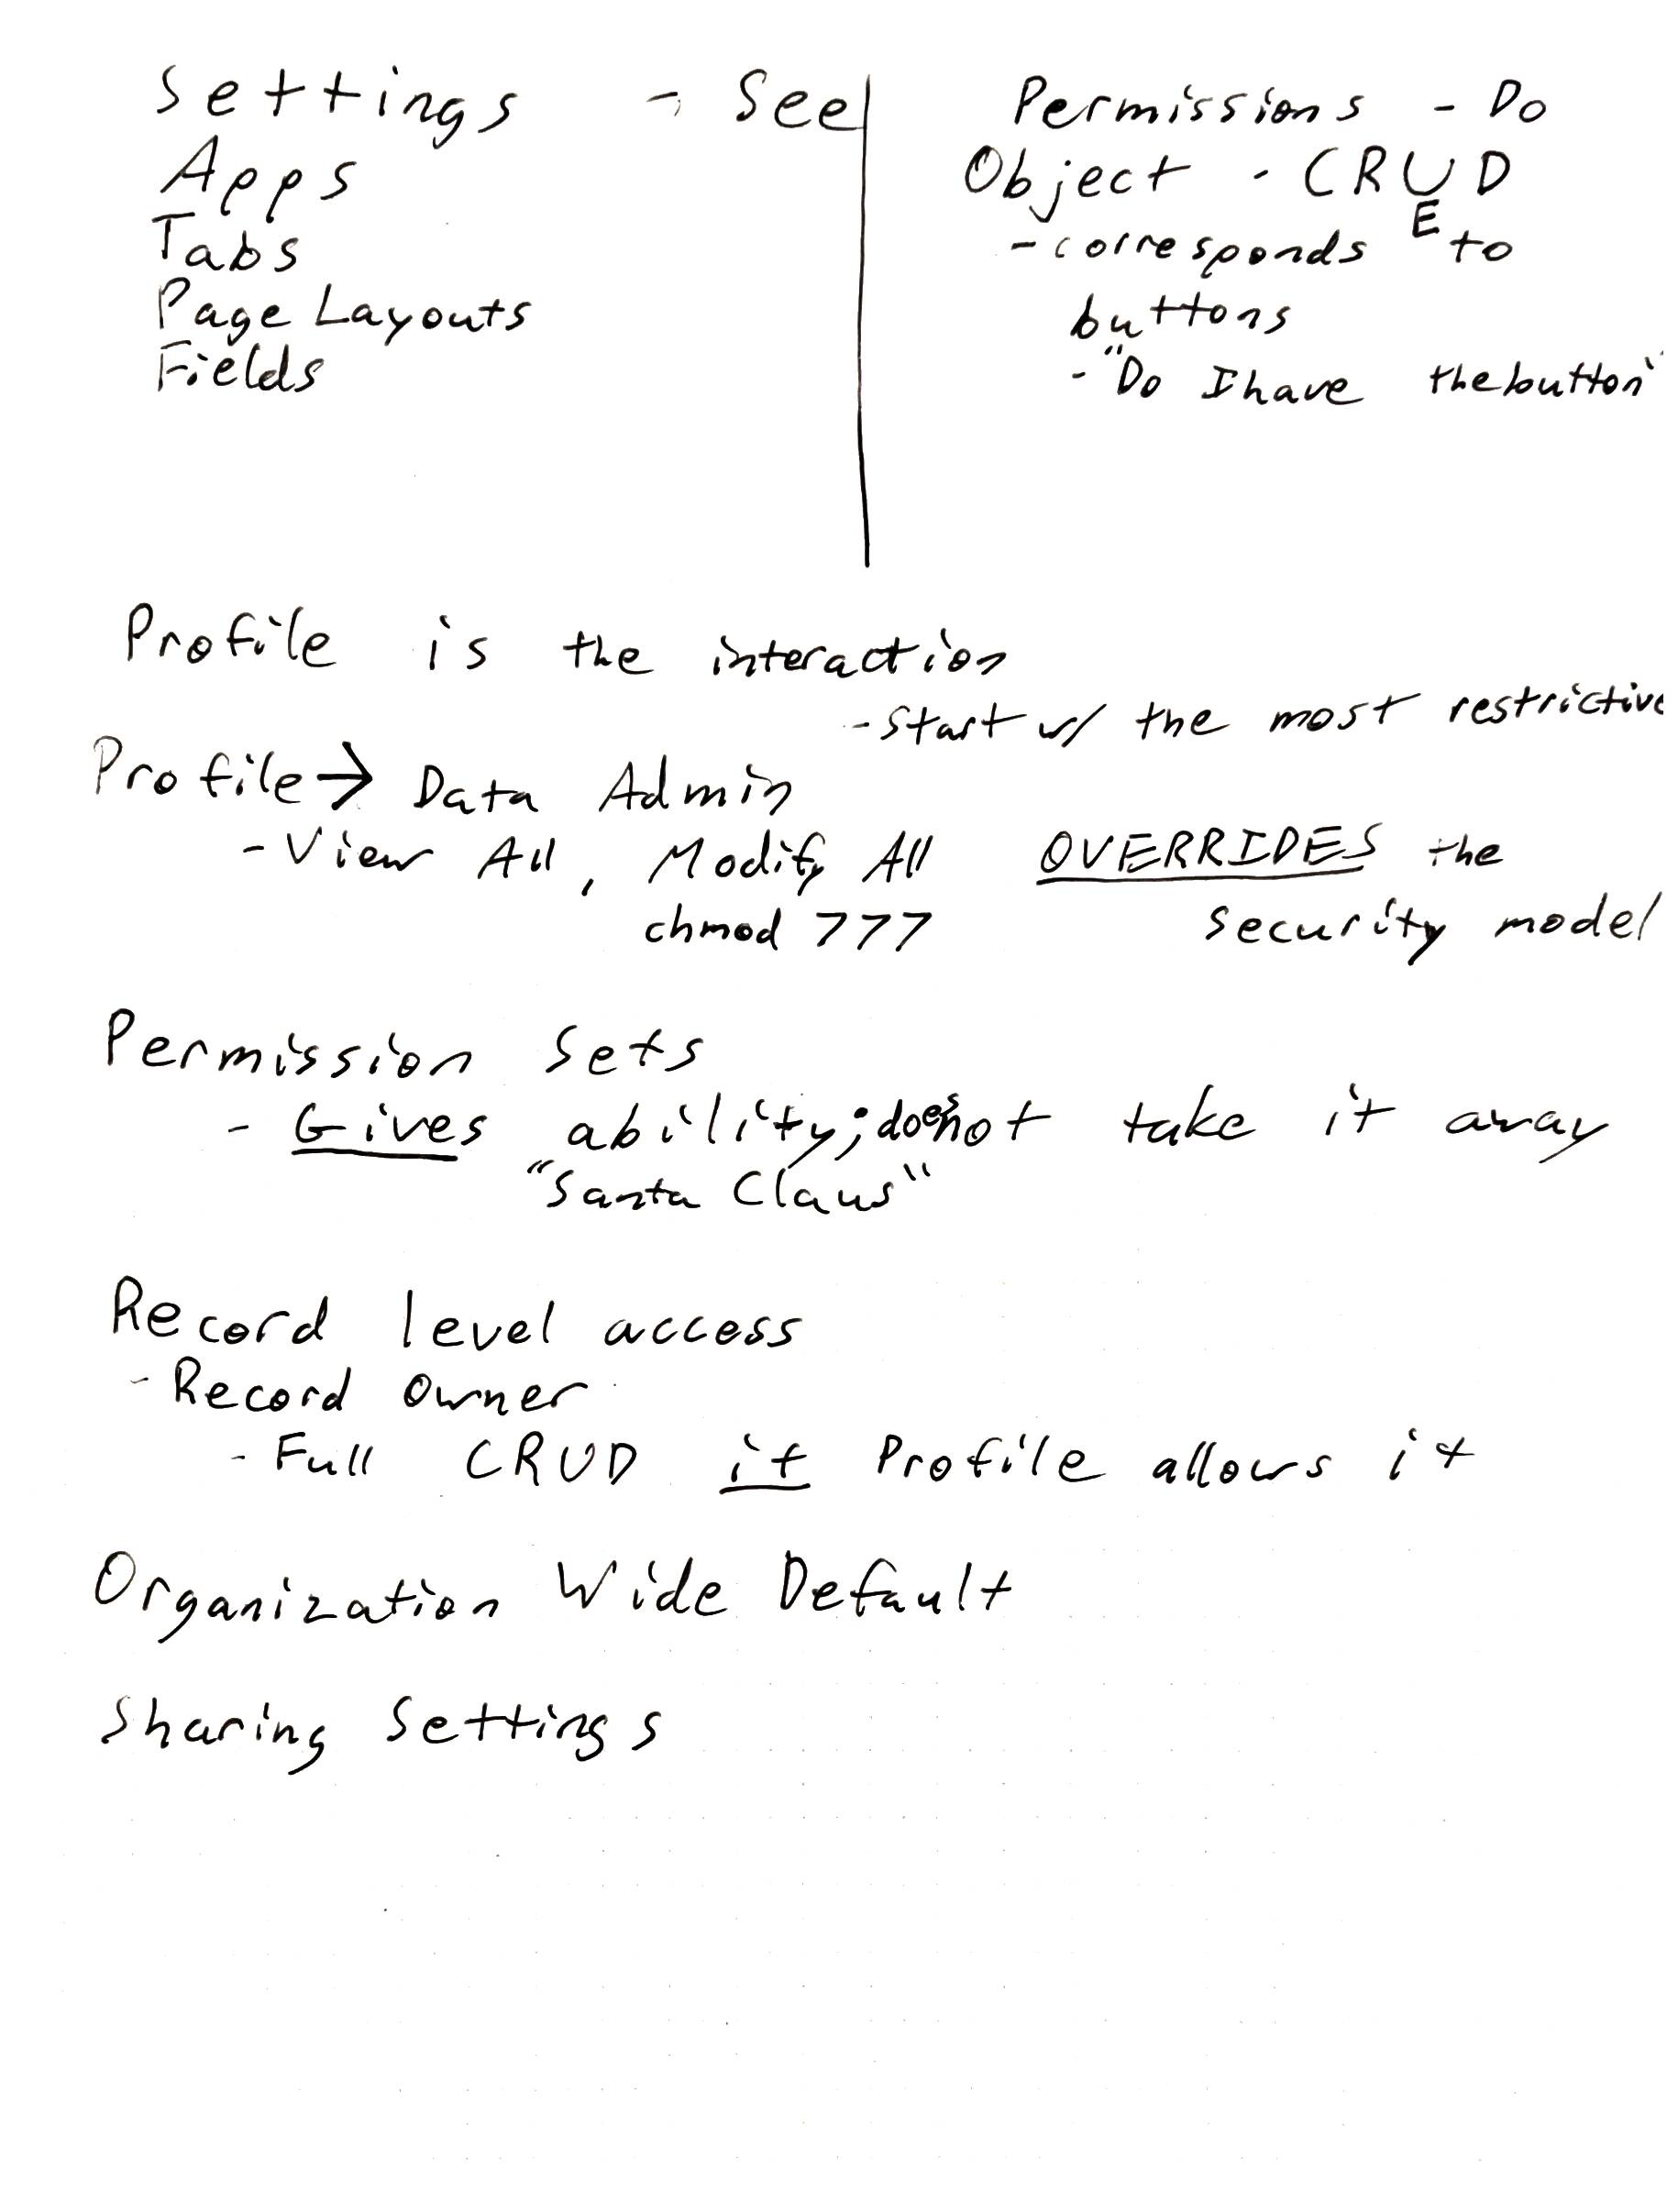 Settings - See
Apps
Tabs
Page Layouts
Fields
Permissions - Do
Object - CRUD
E
- corresponds to
buttons
- "Do I have the button"
Profile is the interaction
- Start w/ the most restrictive
Profile → Data Admin
- View All, Modify All OVERRIDES the
chmod 777 security model
Permission Sets
- Gives ability; does not take it away
"Santa Claus"
Record level access
- Record Owner
- Full CRUD if Profile allows it
Organization Wide Default
Sharing Settings